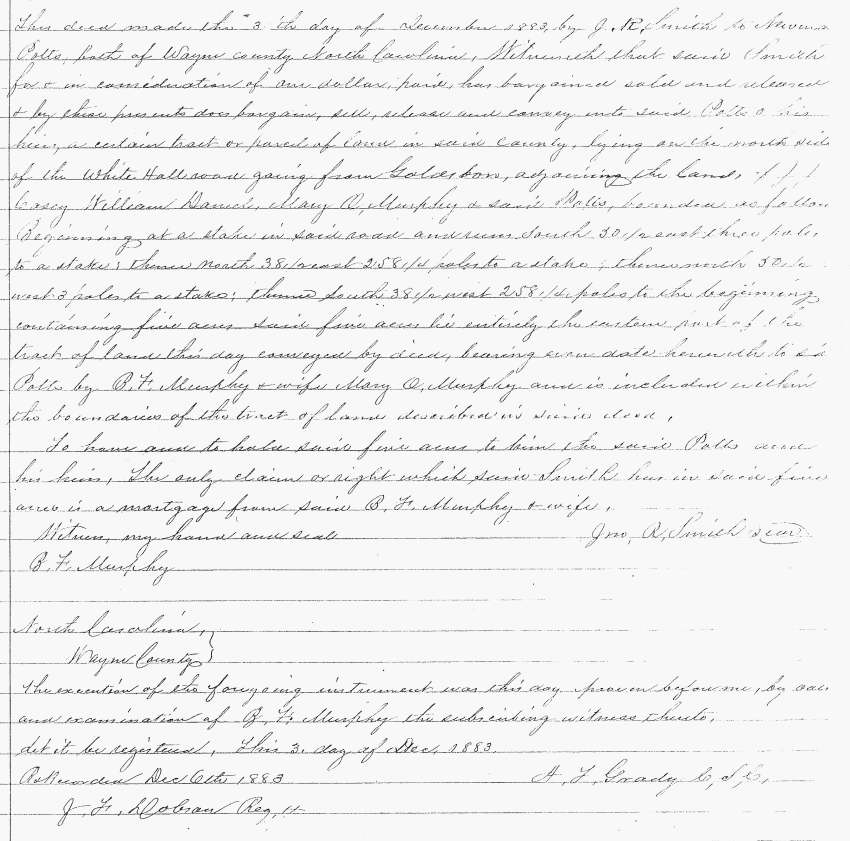 This deed made the 3th day of December 1883, by J. R. Smith to
Potts, both of Wayne county North Carolina, Witnesseth that said Smith
for & in consideration of one dollar, paid, has bargained sold and released
& by these presents does bargain, sell, release and convey unto said Potts & his
heirs, a certain tract or parcel of land in said County, lying on the north side
of the White Hall road going from Goldsboro, adjoining the land, of
Casey William Daniel, Mary O, Murphy & said Potts, bounded as follow
Beginning at a stake in said road and runs South 50 1/2 east three poles
to a stake; thence north 38 1/2 east 258 1/4 poles to a stake; thence north 50 1/2
west 3 poles to a stake; thence South 38 1/2 west 258 1/4 poles to the beginning
containing five acres said five acres lie entirely the eastern part of the
tract of land this day conveyed by deed, bearing even date herewith to sd
Potts by B. F. Murphy & wife Mary O, Murphy and is included within
the boundaries of the tract of land described in said deed,
To have and to hold said five acres to him the said Potts and
his heirs, The only claim or right which said Smith has in said five
acres is a mortgage from said B. F. Murphy & wife,
Witness, my hand and seal Jno, R, Smith seal
B. F. Murphy
North Carolina,
Wayne County
The execution of the foregoing instrument was this day proven before me, by oath
and examination of B. F. Murphy the subscribing witness thereto,
let it be registered, This 3. day of Dec, 1883.
Recorded Dec 6th 1883 A, F, Grady C, S, C,
J, F, Dobson Reg,